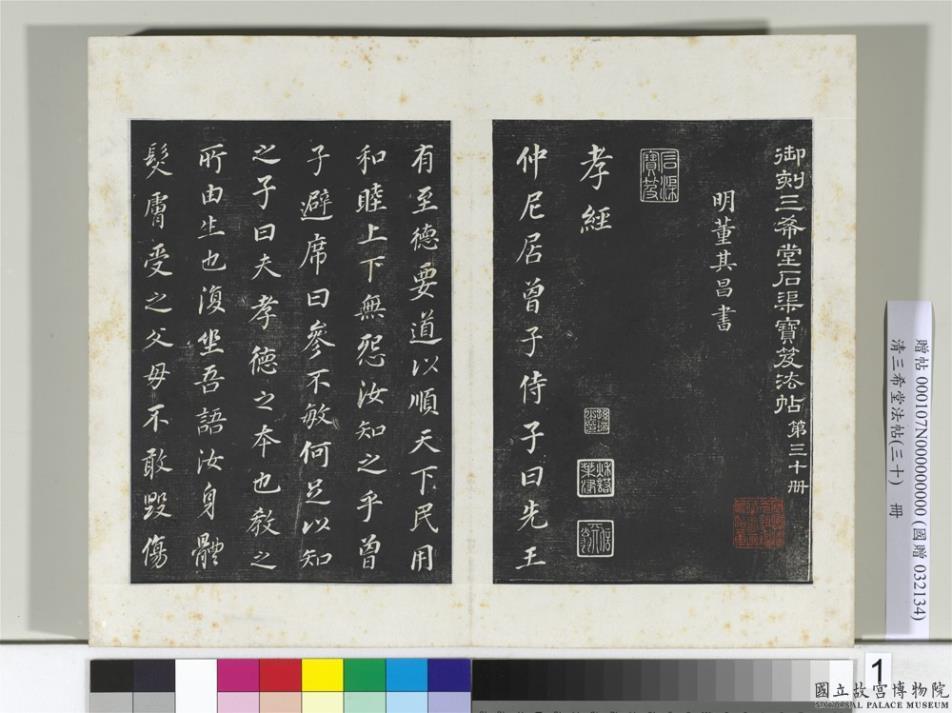 御刻三希堂石渠寶笈法帖 第三十冊
明董其昌書
石渠寶笈
孝經
仲尼居曾子侍子曰先王
有至德要道以順天下民用
和睦上下無怨汝知之乎曾
子避席曰參不敏何足以知
之子曰夫孝德之本也教之
所由生也復坐吾語汝身體
髮膚受之父母不敢毀傷
贈帖 000107N000000000 (國贈 032134)
清三希堂法帖(三十) 冊
1
國立故宮博物院
NATIONAL PALACE MUSEUM